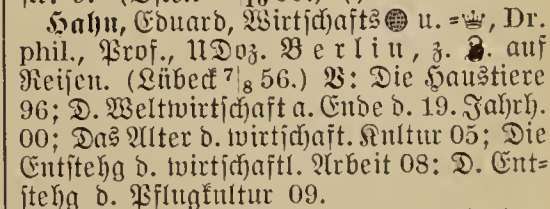 Hahn, Eduard, Wirtschafts🌐 u. =♕, Dr.
phil., Prof., UDoz. Berlin, z. Z. auf
Reisen. (Lübeck 7/8 56.) V: Die Haustiere
96; D. Weltwirtschaft a. Ende d. 19. Jahrh.
00; Das Alter d. wirtschaft. Kultur 05; Die
Entstehg d. wirtschaftl. Arbeit 08; D. Ent=
stehg d. Pflugkultur 09.